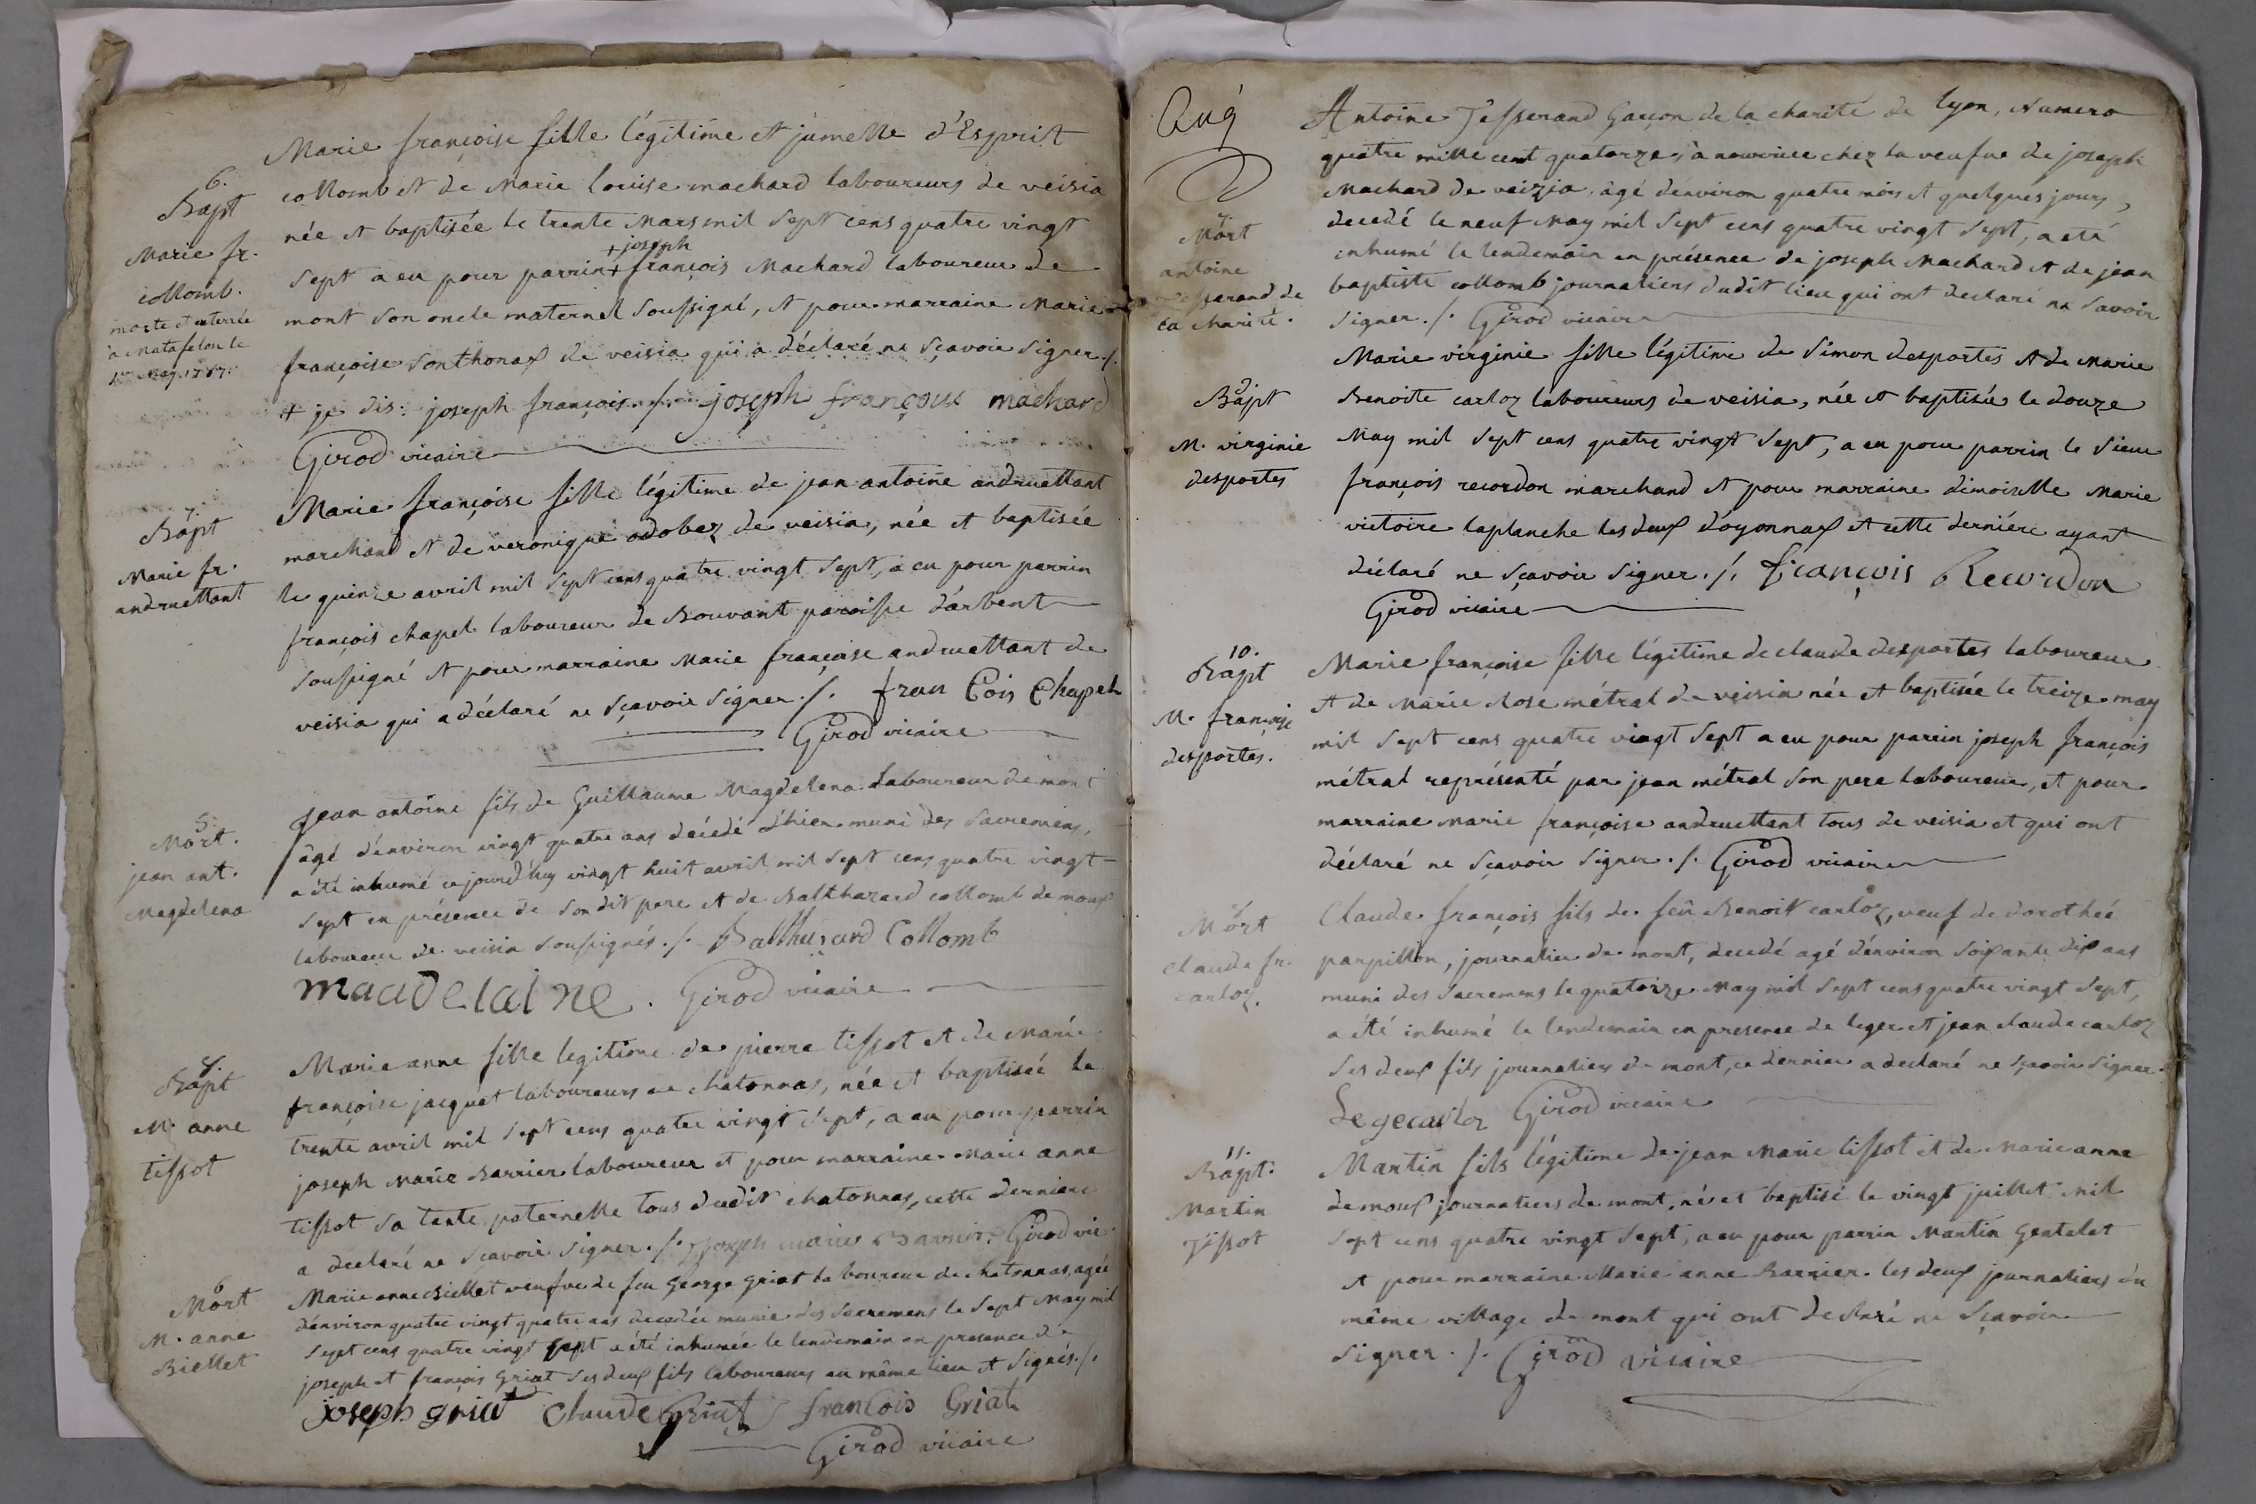 6.
Bapt
Marie fr.
collomb.
morte et enterrée
à Matafelon le
1er May 1787.
Marie françoise fille légitime et jumelle d'Esprit
collomb et de Marie Louise machard laboureurs de veisia
née et baptisée le trente Mars mil sept cens quatre vingt
sept a eu pour parrin + joseph françois Machard laboureur de
mont son oncle maternel soussigné, et pour marraine Marie
françoise Sonthonax de veisia qui a déclaré ne sçavoir signer ./.
+ je dis: joseph françois ./. joseph françois machard
Girod vicaire
7.
Bapt
Marie fr.
andruettant
Marie françoise fille légitime de jean antoine andruettant
marchand et de veronique odobez de veisia, née et baptisée
le quinze avril mil sept cens quatre vingt sept, a eu pour parrin
françois chapel laboureur de Bouvant paroisse d'arbent
soussigné et pour marraine Marie françoise andruettant de
veisia qui a déclaré ne sçavoir signer ./. fran Cois Chapel
Girod vicaire
5.
Mort.
jean ant.
Magdelena
jean antoine fils de Guillaume Magdelena Laboureur de mont
âgé d'environ vingt quatre ans décedé d'hier muni des sacremens,
a été inhumé cejourd'huy vingt huit avril mil sept cens quatre vingt
sept en présence de son dit pere et de Balthazard collomb de moux
laboureur de veisia soussignés ./. Balthazard Collomb
maadelaine. Girod vicaire
8.
Bapt
M. anne
tissot
Marie anne fille legitime de pierre tissot et de Marie
françoise jacquet laboureurs de chatonnas, née et baptisée le
trente avril mil sept cens quatre vingt sept, a eu pour parrin
joseph Marie Barrier laboureur et pour marraine Marie anne
tissot sa tante paternelle tous dudit chatonnas, cette derniere
a declaré ne scavoir signer ./. joseph marie Barrier. Girod vic.
6
Mort
M. anne
Biellet
Marie anne Biellet veufve de feu George Griat laboureur de chatonnas, agée
d'environ quatre vingt quatre ans decedée munie des sacremens le sept May mil
sept cens quatre vingt sept a été inhumée le lendemain en presence de
joseph et françois Griat ses deux fils laboureurs au même lieu et signés ./.
joseph griat Claude Griat françois Griat
Girod vicaire
Aug
7.
Mort
antoine
Tesserand de
la charité.
Antoine Tesserand Garçon de la charité de lyon, Numero
quatre mille cent quatorze, a nourrice chez la veufve de joseph
Machard de veizia, âgé d'environ quatre mois et quelques jours,
decedé le neuf May mil sept cens quatre vingt sept, a eté
inhumé le lendemain en présence de joseph Machard et de jean
baptiste collomb journaliers dudit lieu qui ont declaré ne savoir
signer ./. Girod vicaire
9
Bapt
M. virginie
desportes
Marie virginie fille légitime de Simon desportes et de Marie
Benoite carloz laboureurs de veisia, née et baptisée le douze
May mil sept cens quatre vingt sept, a eu pour parrin le sieur
françois recordon marchand et pour marraine dimoiselle Marie
victoire laplanche les deux d'oyonnax et cette derniére ayant
déclaré ne sçavoir signer ./. François Recordon
Girod vicaire
10.
Bapt
M. françoise
desportes.
Marie françoise fille légitime de claude desportes laboureur
et de Marie Rose métral de veisia née et baptisée le treize may
mil sept cens quatre vingt sept a eu pour parrin joseph françois
métral représenté par jean métral son pere laboureur, et pour
marraine Marie françoise andruettant tous de veisia et qui ont
déclaré ne sçavoir signer ./. Girod vicaire
8
Mort
claude fr.
carloz.
Claude françois fils de feû Benoit carloz, veuf de dorothée
parpillon, journalier de mont, decedé agé d'environ soixante dix ans
muni des sacremens le quatorze May mil sept cens quatre vingt sept,
a été inhumé le lendemain en presence de leger et jean claude carloz
ses deux fils journaliers de mont, ce dernier a declaré ne sçavoir signer.
Legecarloz Girod vicaire
11.
Bapt.
Martin
Tissot
Martin fils légitime de jean Marie tissot et de Marie anne
demoux journaliers de mont, né et baptisé le vingt juillet mil
sept cens quatre vingt sept, a eu pour parrin Martin Gentelet
et pour marraine Marie anne Barrier les deux journaliers du
même village de mont qui ont declaré ne sçavoir
signer ./. Girod vicaire